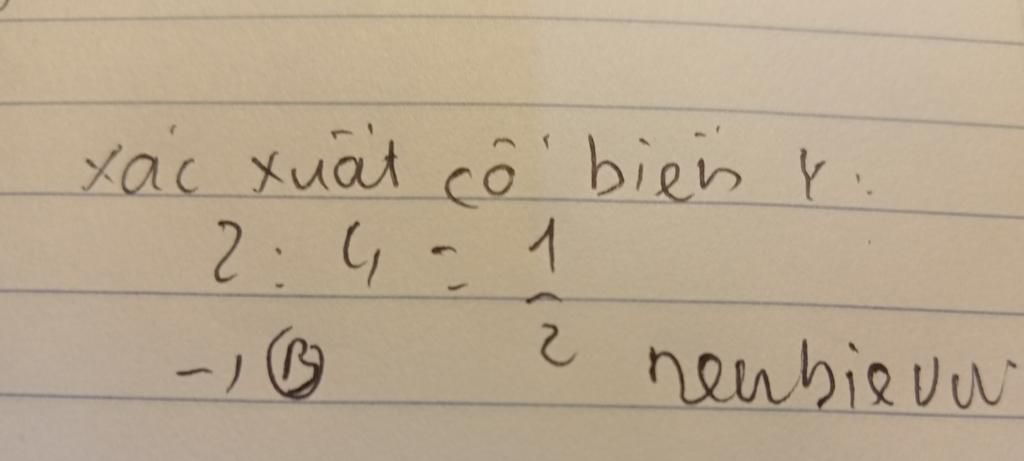 xác xuất cố biến Y:
2 : 4 = 1/2
→ B
newbievv